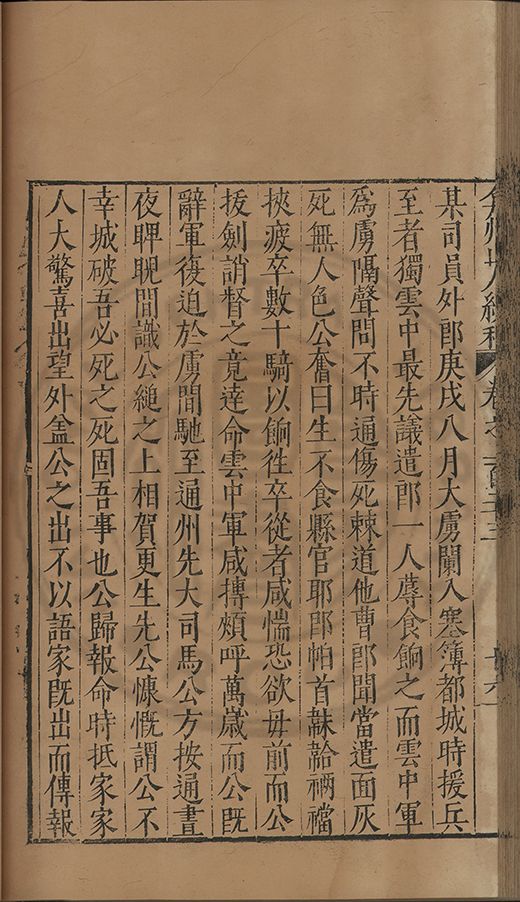 弇州山人續稿 卷之一百三十三 十六
某司員外郎庚戌八月大虜闌入塞簿都城時援兵
至者獨雲中最先議遣郎一人蓐食餉之而雲中軍
爲虜隔聲問不時通傷死棘道他曹郎聞當遣面灰
死無人色公奮曰生不食縣官耶卽帕首韎韐裲襠
挾疲卒數十騎以餉徃卒從者咸惴恐欲毋前而公
拔劍誚督之竟達命雲中軍咸摶頰呼萬歲而公旣
辭軍復迫於虜間馳至通州先大司馬公方按通晝
夜睥睨間識公縋之上相賀更生先公慷慨謂公不
幸城破吾必死之死固吾事也公歸報命時抵家家
人大驚喜出望外盖公之出不以語家旣出而傳報